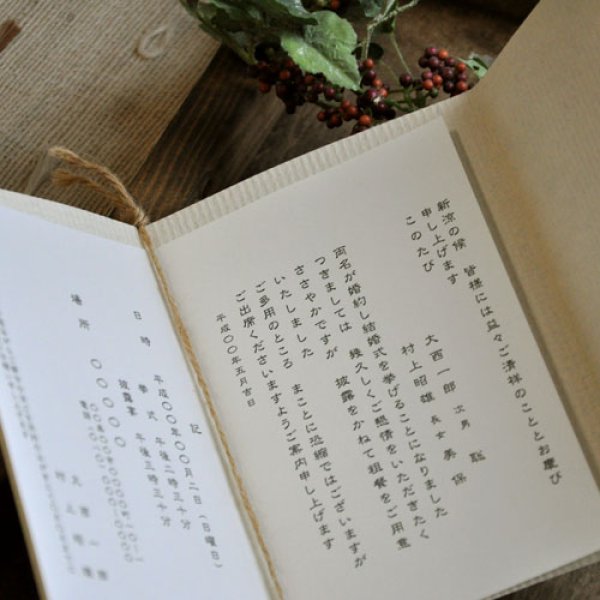 新涼の候　皆様には益々ご清祥のこととお慶び
申し上げます
このたび
大西一郎 次男 聡
村上昭雄 長女 美保
両名が婚約し結婚式を挙げることになりました
つきましては　幾久しくご懇情をいただきたく
ささやかですが　披露をかねて粗餐をご用意
いたしました
ご多用のところ　まことに恐縮ではございますが
ご出席くださいますようご案内申し上げます
平成〇〇年五月吉日
記
日時　平成〇〇年〇〇月二日（日曜日）
挙式　午後二時三十分
披露宴　午後三時三十分
場所　〇〇〇〇